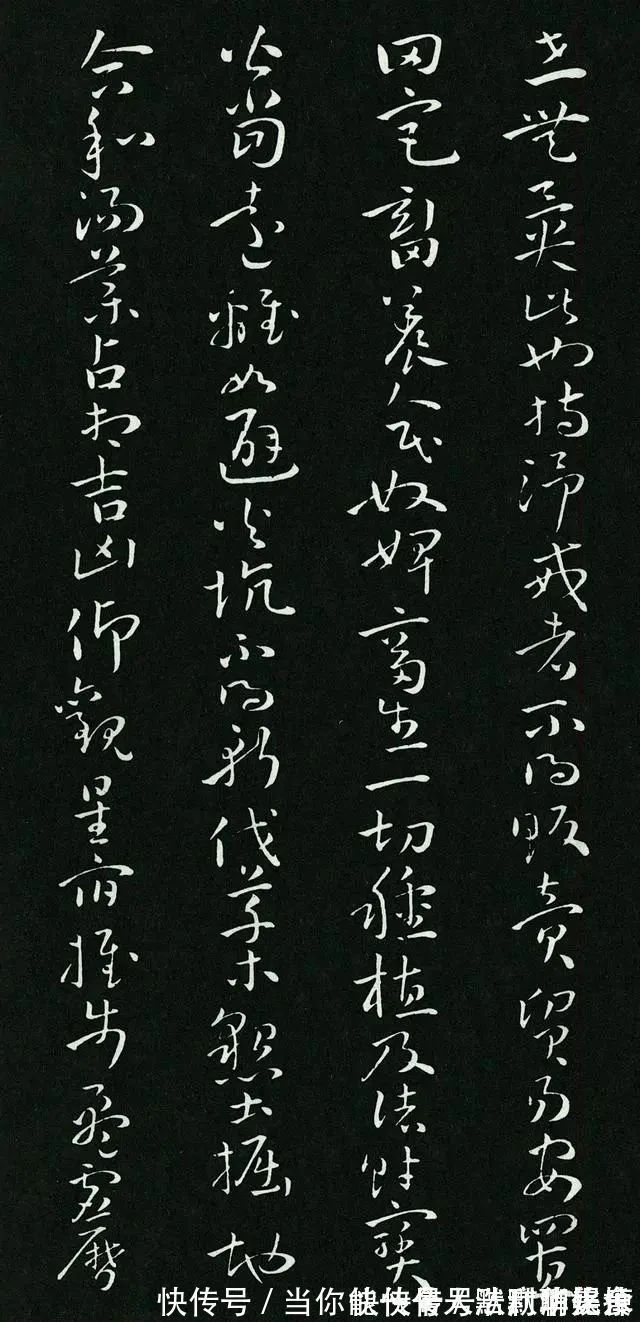 世無異此也持淨戒者不得販賣貿易安置
田宅畜養人民奴婢畜生一切種植及諸財寶
皆當遠離如避火坑不得斬伐草木墾土掘地
合和湯藥占相吉凶仰觀星宿推步盈虛曆
快传号 / 当你能